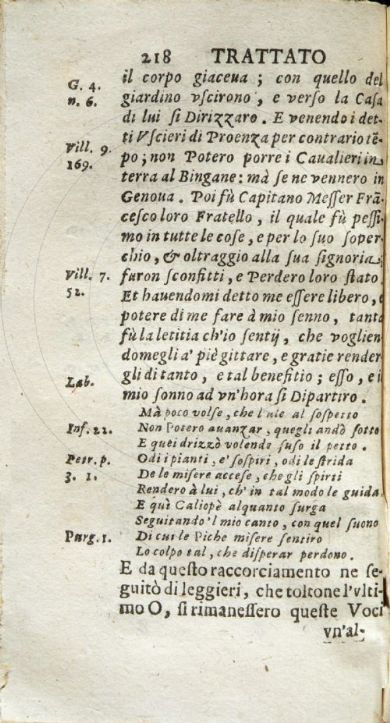 218 TRATTATO
G. 4. il corpo giaceua ; con quello del
n. 6. giardino vscirono , e verso la Casa
di lui si Dirizzaro . E venendo i det-
ti Vscieri di Proenza per contrario tē-
Vill. 9. po ; non Potero porre i Caualieri in
169. terra al Bingane : mà se ne vennero in
Genoua . Poi fù Capitano Messer Frā-
cesco loro Fratello , il quale fù pessi-
mo in tutte le cose , e per lo suo soper-
chio , & oltraggio alla sua signoria ,
Vill. 7. furon sconfitti , e Perdero loro stato .
52. Et hauendomi detto me essere libero , e
potere di me fare à mio senno , tanta
fù la letitia ch'io sentij , che voglien-
domegli a' piè gittare , e gratie render-
gli di tanto , e tal benefitio ; esso , e il
Lab. mio sonno ad vn'hora si Dipartiro .
Mà poco valse , che l'ale al sospetto
Inf. 22. Non Potero auanzar , quegli andò sotto
E quei drizzò volando suso il petto .
Petr. p. Odi i pianti , e' sospiri , odi le strida
3. 1. De le misere accese , che gli spirti
Rendero à lui , ch' in tal modo le guida
E quì Caliopè alquanto surga
Seguitando 'l mio canto , con quel suono
Purg. 1. Di cui le Piche misere sentiro
Lo colpo tal , che disperar perdono .
E da questo raccorciamento ne se-
guitò di leggieri , che toltone l'vlti-
mo O , si rimanessero queste Voci
vn'al-